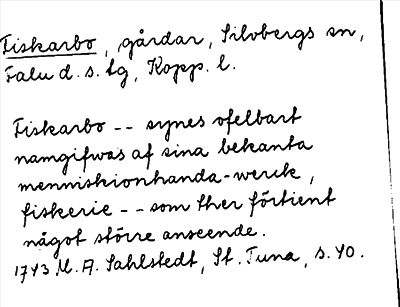 Fiskarbo, gårdar, Silvbergs sn,
Falu d. s. lg, Kopp. l.
Fiskarbo -- synes ofelbart
namgifwas af sina bekanta
menniskionhanda-werck,
fiskerie -- som ther förtient
något större anseende.
1743 M. A. Sahlstedt, St. Tuna, s. 40.